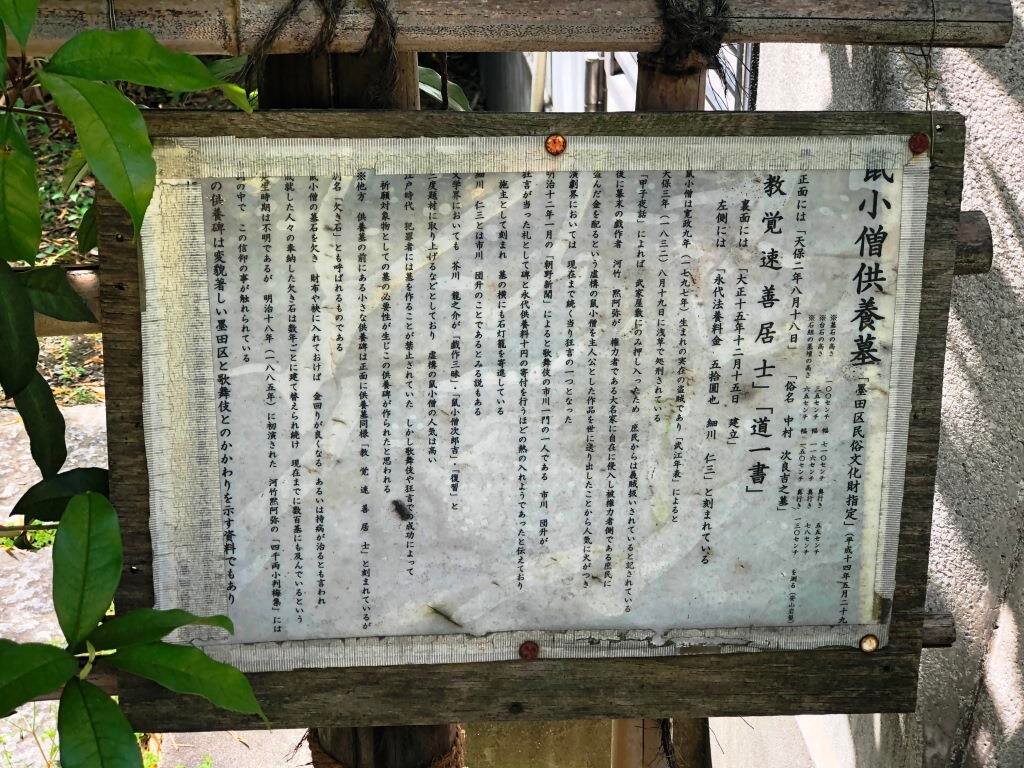 鼠小僧供養墓 「墨田区民俗文化財指定」(平成十四年五月二十九
※墓石の高さ 一〇〇センチ 幅 七一〇センチ 奥行き 五五センチ
※台石の高さ 三五センチ 幅 一一六センチ 奥行き 七八センチ
※石組の墓壇の高さ 六五センチ 幅 一五〇センチ 奥行き 一三〇センチ を測る
正面には「天保二年八月十八日」 「俗名 中村 次良吉之墓」
教覚速善居士」「道一書」
裏面には 「大正十五年十二月十五日 建立」
左側には 「永代法養料金 五拾圓也 細川 仁三」と刻まれている
鼠小僧は寛政九年(一七九七年)生まれの実在の盗賊であり「武江年表」によると
天保三年(一八三二)八月十九日に浅草で処刑されている
「甲子夜話」によれば 武家屋敷にのみ押し入ったため 庶民からは義賊扱いされていると記されている
後に幕末の戯作者 河竹 黙阿弥が 権力者である大名家に自在に侵入し被権力者側である庶民に
盗んだ金を配るという虚構の鼠小僧を主人公とした作品を世に送り出したことから人気に火がつき
演劇界においては 現在まで続く当り狂言の一つとなった
明治十二年一月の「朝野新聞」によると歌舞伎の市川一門の一人である 市川 団升が
狂言が当った礼として碑と永代供養料十円の寄付を行うほどの熱の入れようであったと伝えており
施主として刻まれ 墓の横にも石灯籠を寄進している
細川 仁三とは市川 団升のことであるとみる説もある
文学界においても 芥川 龍之介が「戯作三昧」・「鼠小僧次郎吉」・「復讐」と
三度題材に取り上げるなどとしており 虚構の鼠小僧の人気は高い
江戸時代 犯罪者には墓を作ることが禁止されていた しかし歌舞伎や狂言での成功によって
祈願対象物としての墓の必要性が生じこの供養碑が作られたと思われる
※他方 供養墓の前にある小さな供養碑は正面に供養墓同様「教 覚 速 善 居 士」と刻まれているが
別名「欠き石」とも呼ばれるものである
鼠小僧の墓石を欠き 財布や袂に入れておけば 金回りが良くなる あるいは持病が治るとも言われ
成就した人々の奉納した欠き石は数年ごとに建て替えられ続け 現在までに数百基にも及んでいるという
発生時期は不明であるが 明治十八年(一八八五年)に初演された 河竹黙阿弥の「四千両小判梅葉」には
の中で この信仰の事が触れられている
の供養碑は変貌著しい墨田区と歌舞伎とのかかわりを示す資料でもあり